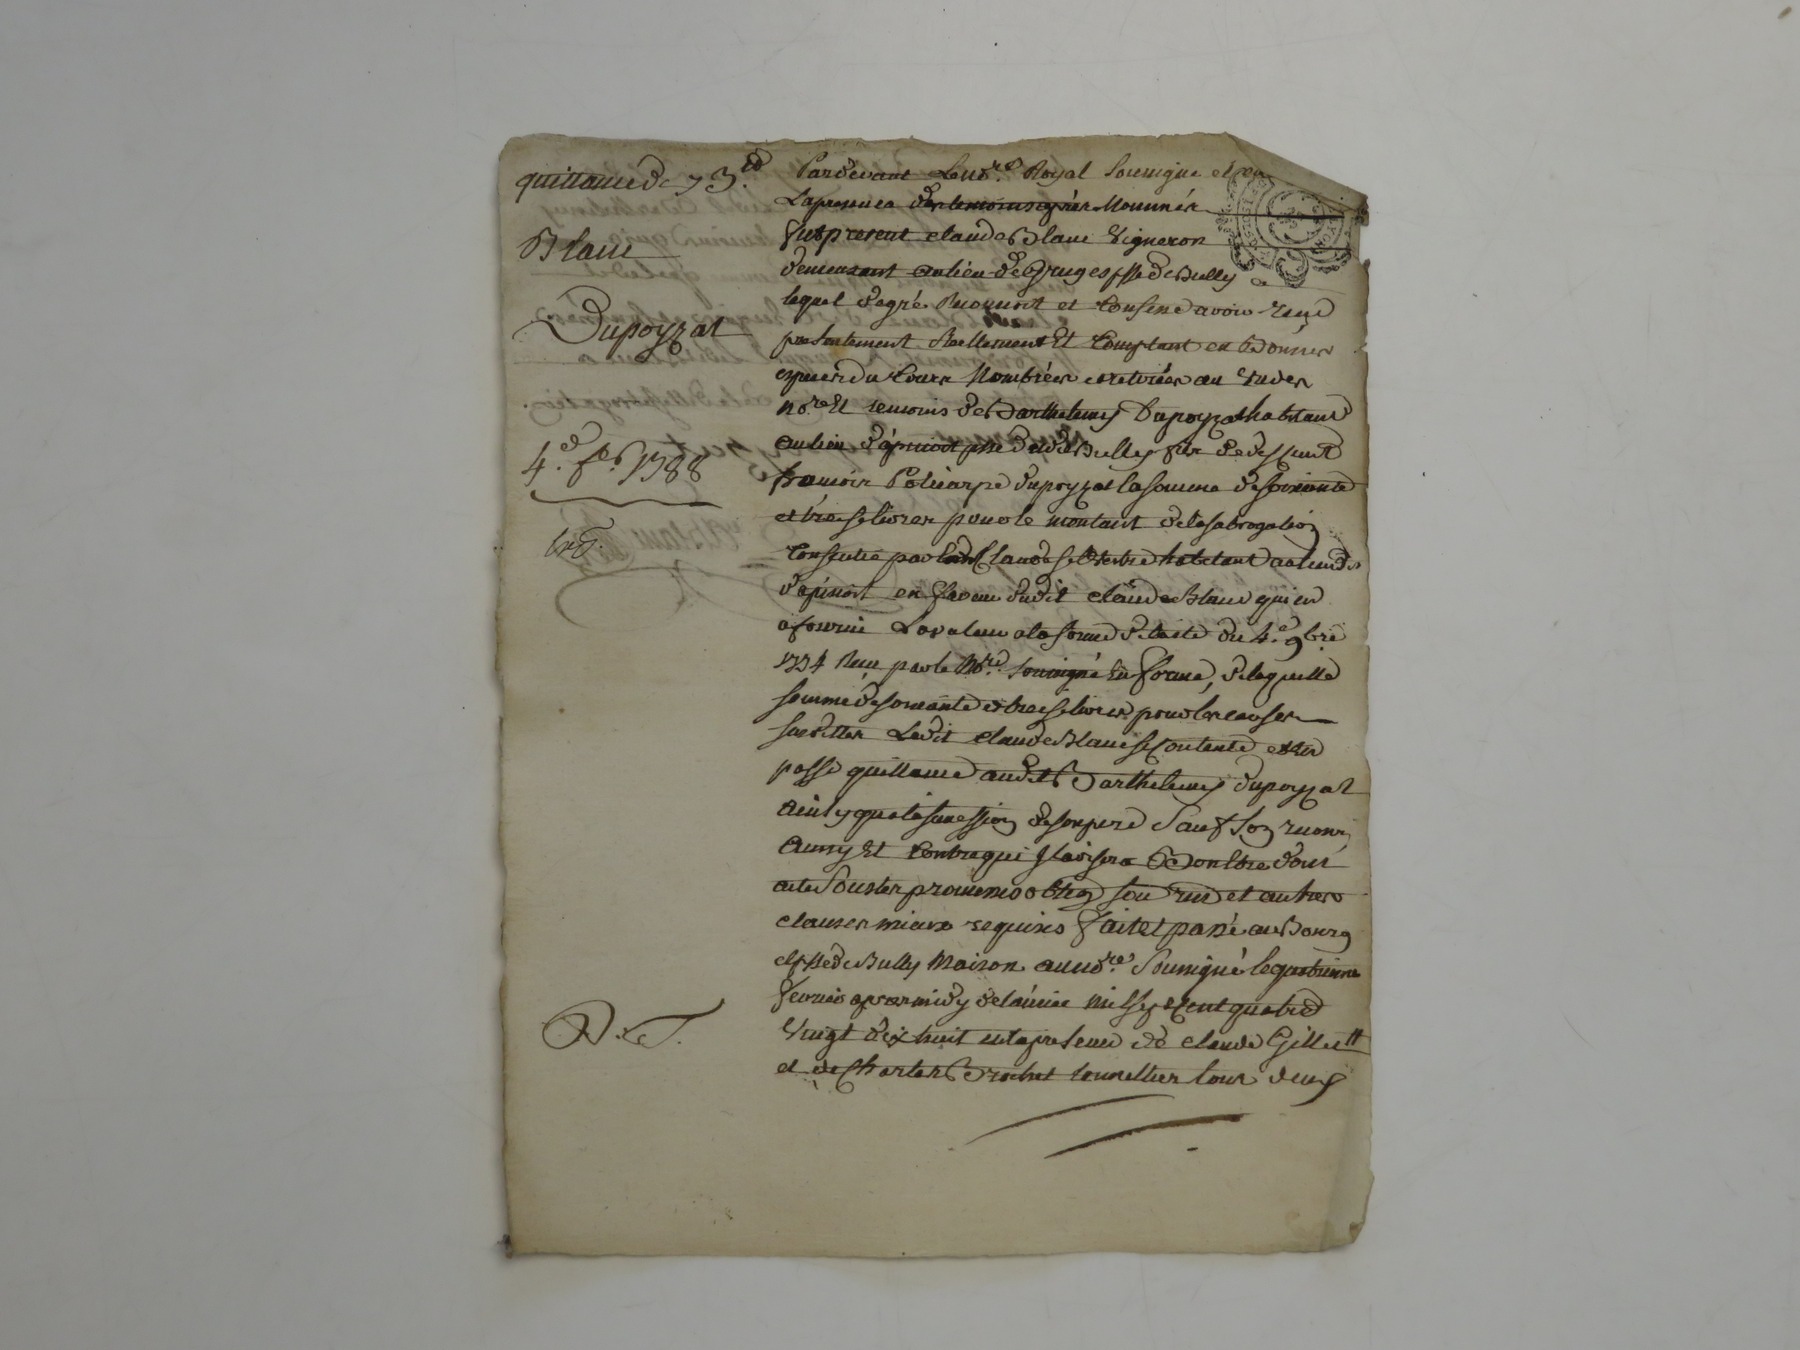 quittance de 73.ll
Blanc
Dupoyzat
4.e f.er 1788
Pardevant Le no.re Royal Soussigné et en
La presence des temoins après Nommés
fut present claude Blanc Vigneron
demeurant au lieu de Gruges p.sse de Bully
lequel de gré Reconnoit et Confesse avoir reçu
presentement Reellement Et Comptant en bonnes
especes du Cours Nombrées et retirées au vu des
no.re Et temoins de Barthelemy Dupoyzat habitant
au lieu d'apinost p.sse dudit Bully fils de deffunt
francois Policarpe dupoyzat la somme de soixante
et treise livres pour le montant de la subrogation
Consentie par Claude habitant au lieu
d'apinost en faveur dudit claude Blanc qui en
a fourni La valeur a la forme de l'acte du 4.e 9bre
1774 Reçu par le No.re soussigné En forme, de laquelle
somme de soixante et treise livres pour les causes
susdittes Ledit claude Blanc se Contente et en
passe quittance audit Barthelemy dupoyzat
ainsy qua la succession de son pere Sauf son recours
Et Contre qui Il avisera Dont acte
acte Sous les promesses oblig.on sou.on ren.on et autres
clauses mieux requises fait et passé au Bourg
et p.sse de Bully Maison du no.re Soussigné le quatrieme
fevrier apres midy de l'année mil sept Cent quatre
Vingt dix huit en la presence de claude Gillet
et de Charles Brochet tonnellier tous deux
D. S.